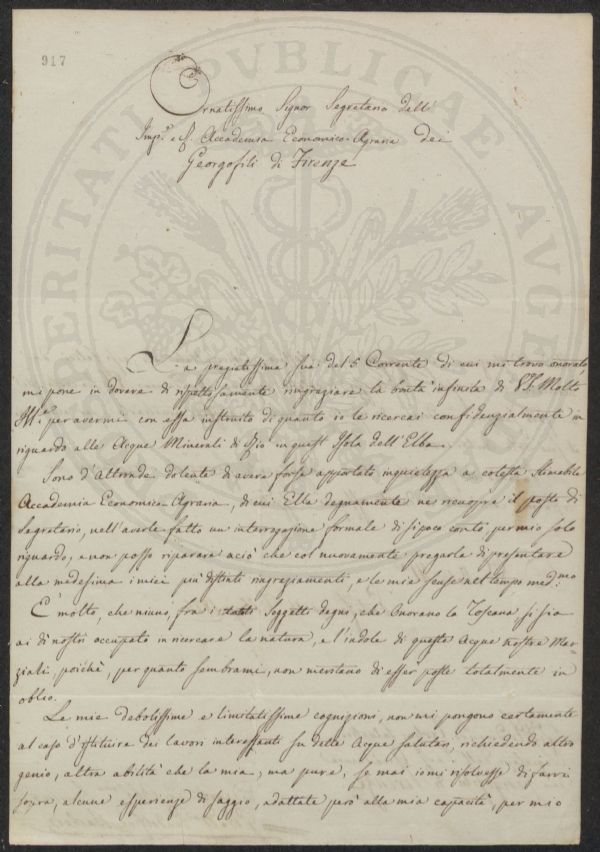 917
Ornatissimo Signor Segretario dell'
Imp.e e R. Accademia Economico-Agraria dei
Georgofili di Firenze
PROSPERITATI PUBLICAE AUGENDAE
La pregiatissima sua del 5 Corrente di cui mi trovo onorato
mi pone in dovere di rispettosamente ringraziare la bontà infinita di VS. Molto
Ill.e per avermi con essa instruito di quanto io le ricercai confidenzialmente in
riguardo alle Acque Minerali di Rio in quest'Isola dell'Elba.
Sono d'Altronde dolente di avere forse apportato inquietezza a cotesta stimabile
Accademia Economico-Agraria, di cui Ella degnamente ne ricuopre il posto di
Segretario, nell'averle fatto un interrogazione formale di sì poco conto, per mio solo
riguardo, e non posso riparare a ciò che col nuovamente pregarla di presentare
alla medesima i miei più distinti ringraziamenti, e le mie scuse nel tempo med.mo
E' molto, che niuno, fra i tanti Soggetti degni, che Onorano la Toscana si sia
ai dì nostri occupato in ricercare la natura, e l'indole di queste Acque nostre Mar-
ziali, poichè, per quanto sembrami, non meritano di esser poste totalmente in
oblio.
Le mie debolissime e limitatissime cognizioni, non mi pongono certamente
al caso d'istituire dei lavori interessanti su dette Acque salutari, richiedendo altro
genio, altra abilità che la mia, ma pure, se mai io mi risolvessi di farvi
sopra, alcune esperienze di saggio, adattate però alla mia capacità, per mio